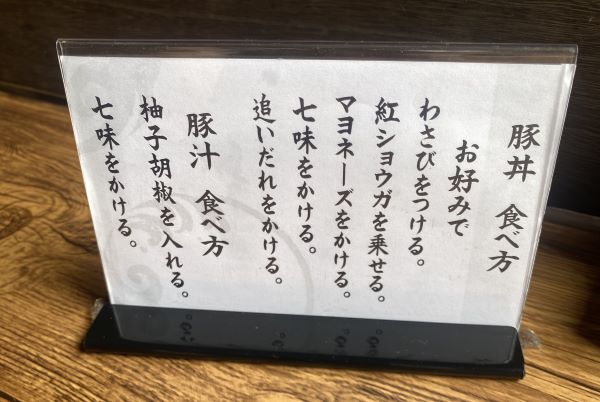 豚丼　食べ方
お好みで
わさびをつける。
紅ショウガを乗せる。
マヨネーズをかける。
七味をかける。
追いだれをかける。
豚汁　食べ方
柚子胡椒を入れる。
七味をかける。